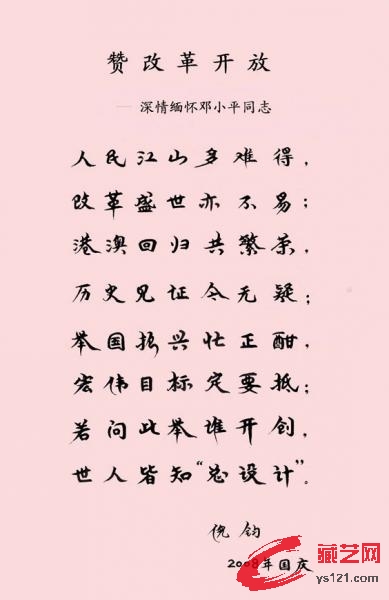 赞改革开放
—深情缅怀邓小平同志
人民江山多难得，
改革盛世亦不易；
港澳回归共繁荣，
历史见证令无疑；
举国振兴忙正酣，
宏伟目标定要抵；
若问此举谁开创，
世人皆知“总设计”。
倪钧
2008年国庆
藏艺网
ys121.com